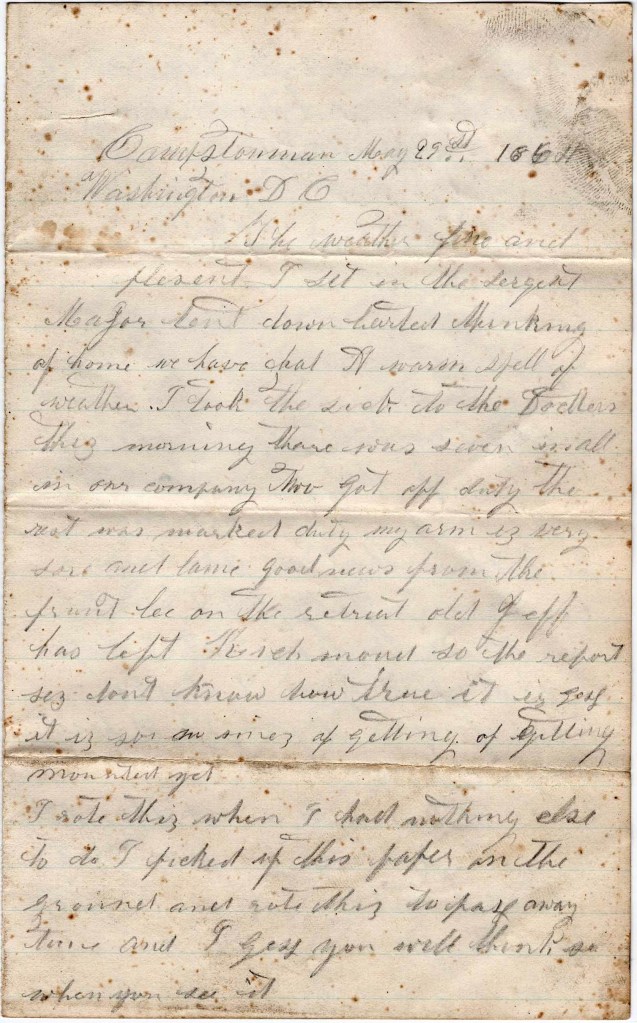 Camp Stonman May 29th 1864
Washington D C
The weather fine and
plesent I set in the sergent
Major tent down harted thinking
of home we have had A warm spell of
weather. I took the sick to the Docters
thiz morning thare was seven in all
in our company two got off duty the
rest was marked duty my arm iz very
sore and lame good news from the
frunt lee on the retreat old Jeff
has left Richmond so the report
sez dont know how true it iz
it iz so no sines of getting of getting
mounted yet
I rote thiz when I had nothing else
to do I picked up this paper on the
ground and rote thiz to pass away
time and I gess you will think so
when you see it